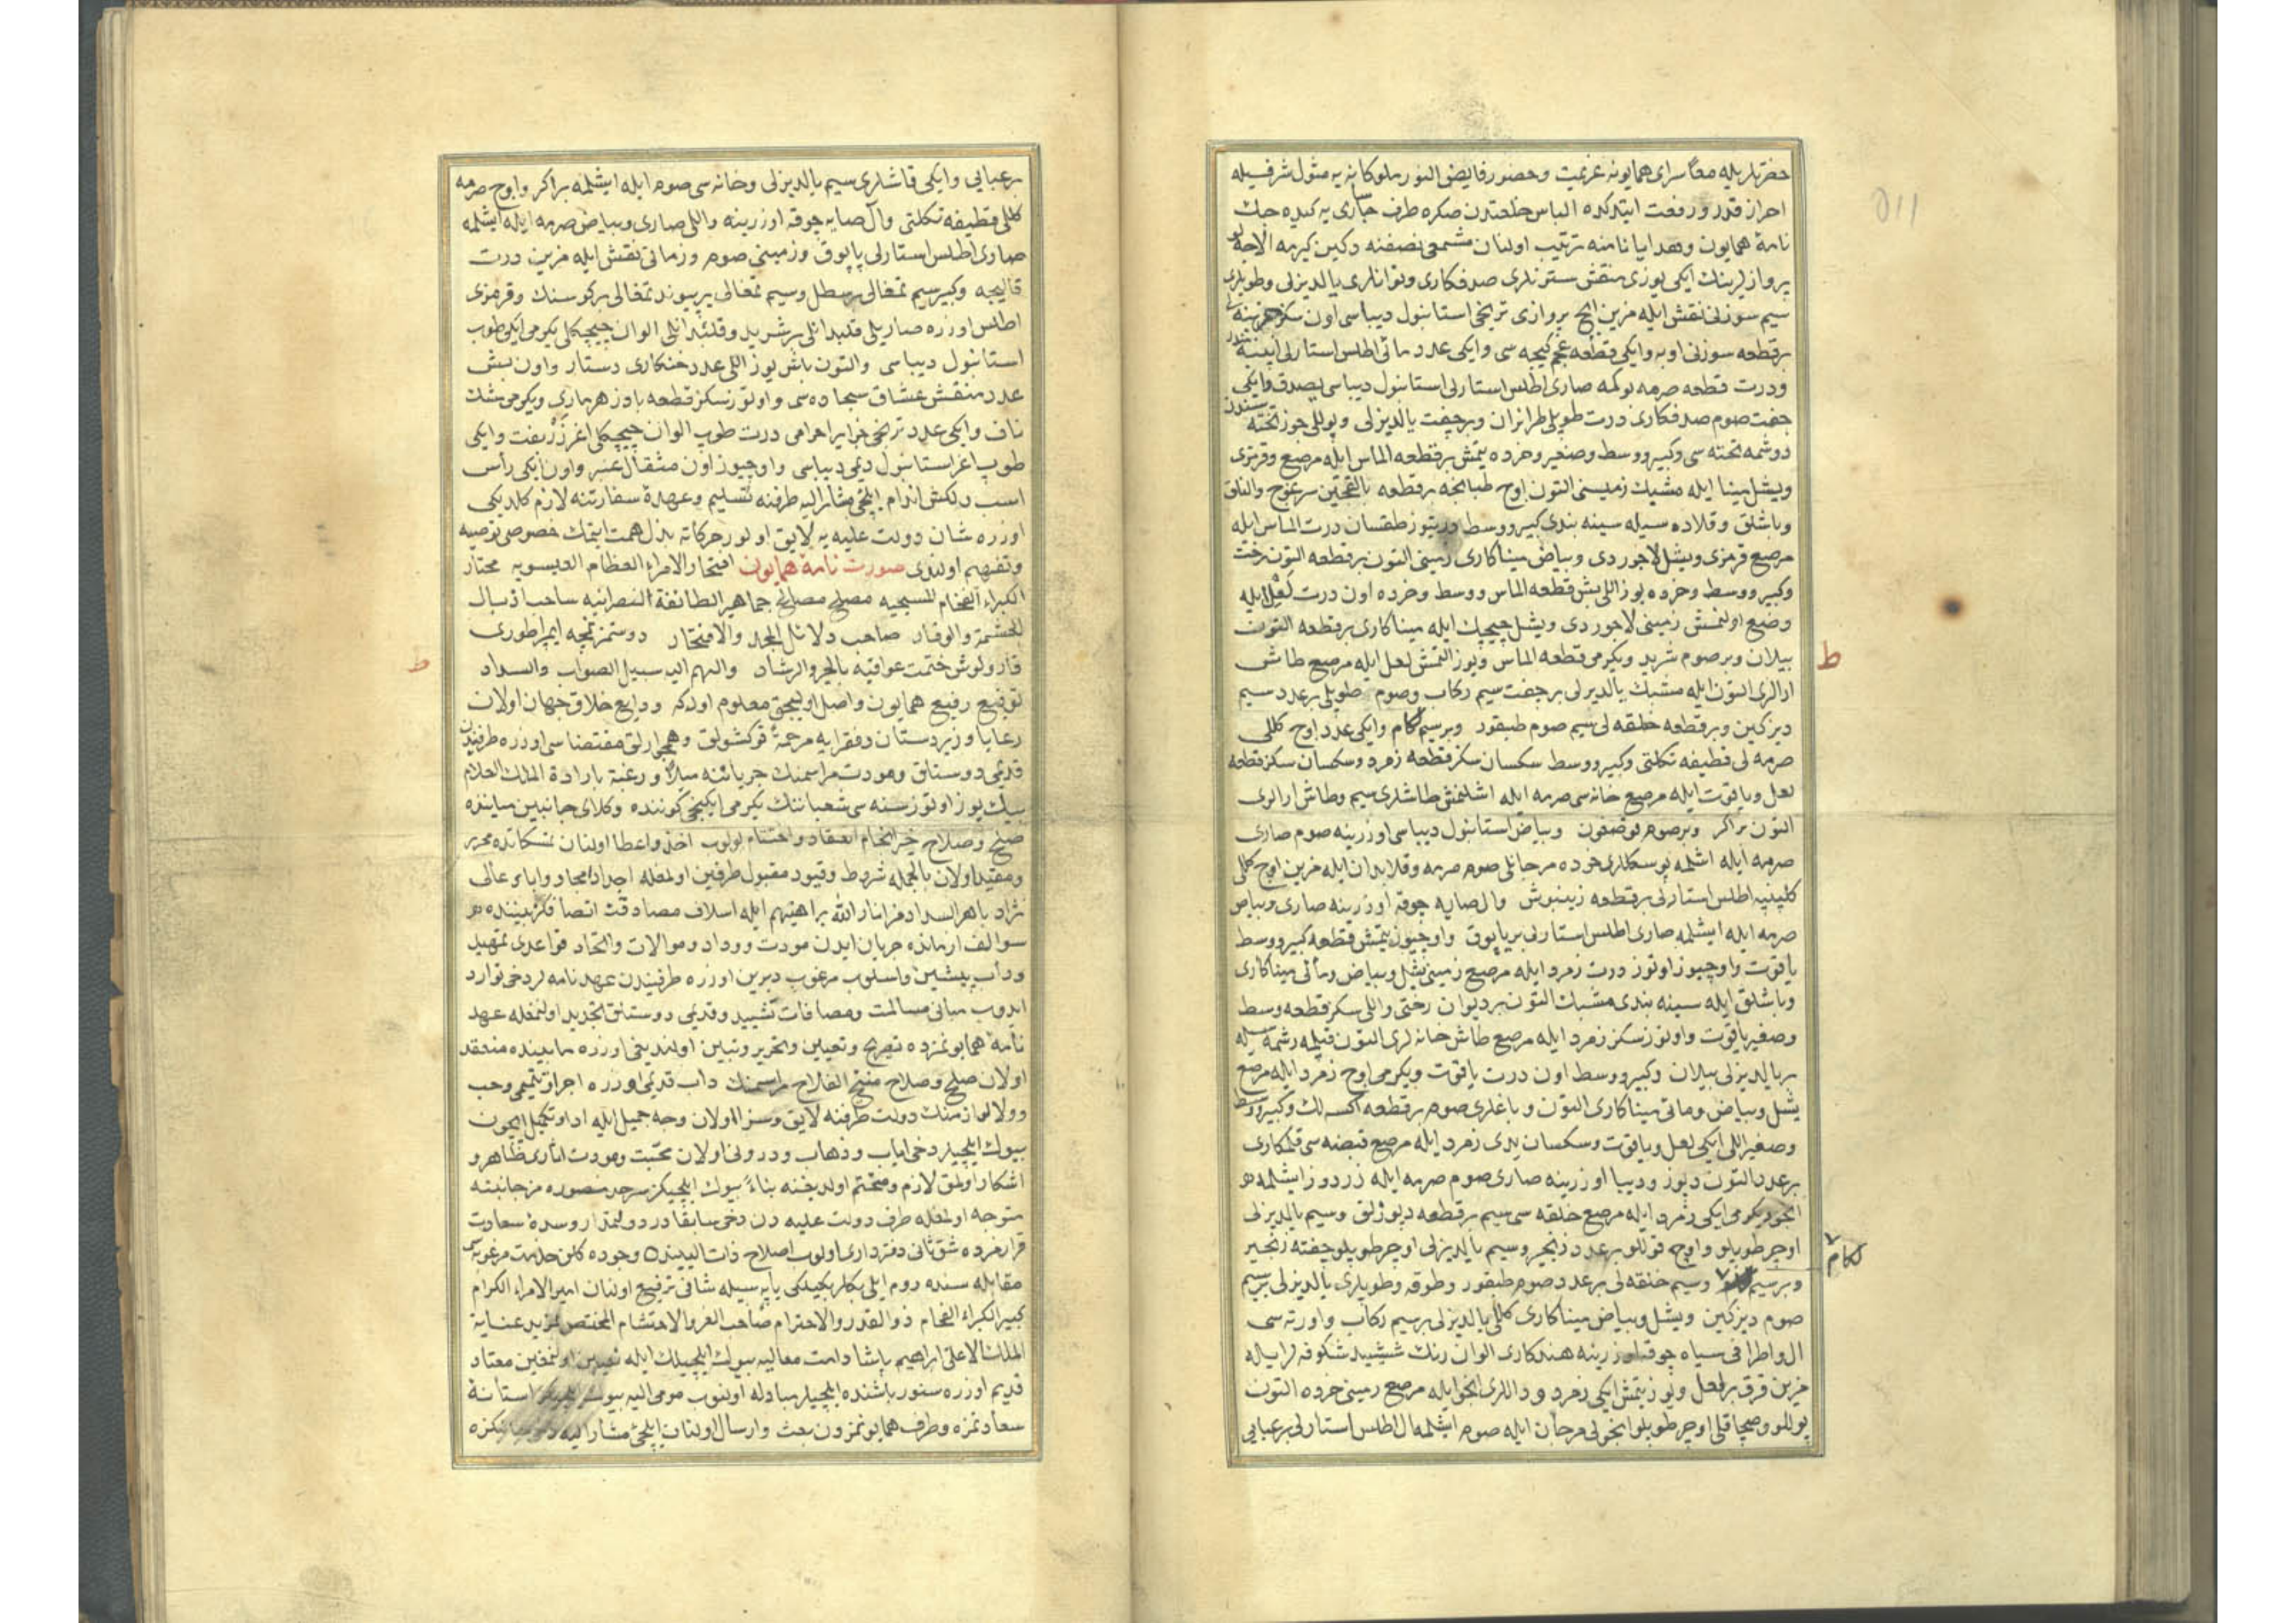 حضرتلریله معاً سرای همایونه عزیمت وحضور فایض النور ملوکانه یه مثول شرفیله
احراز قدر و رفعت ایتدکده الباس خلعتدن صکره طرف چاساری یه کیده جك
نامهٔ همایون وهدایا نامنه ترتیب اولنان مشمعی نصفنه دکین کیرمه
پروازلرینك ایکی یوزی منقش ستونلری صدفکاری وتوانلری یالدیزلی وطوپلری
سیم سوزنی نقش ایله مزین ایچ پروازی ترنجی استانبول دیباسی اون سکز خزینه لی
برقطعه سوزنی اوبه وایکی قطعه عجم کیچه سی وایکی عدد مائی اطلس استارلی
ودرت قطعه صرمه دوکمه صاری اطلس استارلی استانبول دیباسی یصدق وایکی
جفت صوم صدفکاری درت طوپلی طرابزان وبر جفت یالدیزلی وپوللی جوز تخته سندن
دوشمه تخته سی وکبیر ووسط وصغیر وخرده یتمش برقطعه الماس ایله مرصع وقرمزی
ویشل مینا ایله مشبك زمینی التون اوچ طبانجه برقطعه سرغوج
وباشلق وقلاده سیله سینه بندی کبیر ووسط درتیوز طقسان درت الماس ایله
مرصع قرمزی ویشل لاجوردی وبیاض میناکاری زمینی التون برقطعه التون رخت
وکبیر ووسط وخرده یوز اللی بش قطعه الماس ووسط وخرده اون درت لعل ایله
وضع اولنمش زمینی لاجوردی ویشل چیچك ایله میناکاری برقطعه التون
بیلان وبر صوم شرید ویکرمی قطعه الماس ویوز التمش لعل ایله مرصع طاش
ارالری التون ایله مشبك یالدیزلی بر جفت سیم رکاب وصوم طوپلی برعدد سیم
دیزکین وبرقطعه خلقه لی سیم صوم طبقور وبر سیم لکام وایکی عدد اوچ کللی
صرمه لی قطیفه تکلتی وکبیر ووسط سکسان سکز قطعه زمرد وسکسان سکز قطعه
لعل ویاقوت ایله مرصع خانه سی صرمه ایله اشلنمش طاشلری سیم وطاش ارالری
التون براکر وبر صوم قوصقون وبیاض استانبول دیباسی اوزرینه صوم صاری
صرمه ایله اشلمه پوسکللری خرده مرجانلی صوم صرمه وقلابدان ایله مزین اوچ کللی
اطلس استارلی برقطعه زینپوش وال صایه چوقه اوزرینه صاری وبیاض
صرمه ایله ایشلمه صاری اطلس استارلی بر یاپوق واوچیوز یتمش قطعه کبیر ووسط
یاقوت واوچیوز اوتوز درت زمرد ایله مرصع زمینی یشل وبیاض ومائی میناکاری
وباشلق ایله سینه بندی مشبك التون بر دیوان رختی واللی سکز قطعه وسط
وصغیر یاقوت واوتوز سکز زمرد ایله مرصع طاش خانه لری التون قپلمه رشمه سیله
بر یالدیزلی بیلان وکبیر ووسط اون درت یاقوت ویکرمی اوچ زمرد ایله مرصع
یشل وبیاض ومائی میناکاری التون وباغلری صوم برقطعه اکسه لك وکبیر ووسط
وصغیر اللی ایکی لعل ویاقوت وسکسان یدی زمرد ایله مرصع قبضه سی قلمکاری
برعدد التون دبوز ودیبا اوزرینه صاری صوم صرمه ایله زردوز ایشلمه
انجو ویکرمی ایکی زمرد ایله مرصع خلقه سی سیم برقطعه دبوزلق وسیم یالدیزلی
اوچر طوپلو واوچه قوللو برعدد زنجیر وسیم یالدیزلی اوچر طوپلو جفته زنجیر
وبر سیم وسیم خلقه لی برعدد صوم طبقور وطوقه وطوپلری یالدیزلی بر سیم
لکام
صوم دیزکین ویشل وبیاض میناکاری کللی یالدیزلی بر سیم رکاب واورته سی
ال واطرافی سیاه چوقه اوزرینه هندکاری الوان رنك شکوفه لر ایله
مزین قرق برلعل ویوز یتمش ایکی زمرد ودالری انجو ایله مرصع زمینی خرده التون
پوللو وصچاقلی اوچر طوپلو انجولی مرجان ایله صوم ایشلمه ال اطلس استارلی بر عبایی
برعبایی وایکی قاشلری سیم یالدیزلی وخانه سی صوم ایله ایشلمه براکر واوچ صرمه
کللی قطیفه تکلتی وال صایه چوقه اوزرینه واللی صاری وبیاض صرمه ایله ایشلمه
صاری اطلس استارلی یاپوق وزمینی صوم وزمانی نقش ایله مزین درت
قالیچه وکبیر سیم تمغالی بر سطل وسیم تمغالی بر پیوند تمغالی بر کوستك وقرمزی
اطلس اوزره صاریلی قلبدانلی بر شرید وقلبدانلی الوان چیچکلی یکرمی ایکی طوپ
استانبول دیباسی والتون باش یوز اللی عدد خنکاری دستار واون بش
عدد منقش عشاق سجاده سی واوتوز سکز قطعه بادزهر ماری ویکرمی مشك
ناف وایکی عدد ترنجی خرایر احرامی درت طوپ الوان چیچکلی اغر زربفت وایکی
طوپ اغر استانبول دیمی دیباسی واوچیوز اون مثقال عنبر واون ایکی رأس
اسب دلکش اندام ایلچئ مشار الیه طرفنه تسلیم وعهدهٔ سفارتنه لازم کلدیکی
اوزره شان دولت علیه یه لایق اولور حرکاته بذل همت ایتمك خصوصی توصیه
وتفهیم اولندی صورت نامهٔ همایون افتخار الامراء العظام العیسویه مختار
الکبراء الفخام المسیحیه مصلح مصالح جماهیر الطائفة النصرانیه ساحب اذیال
الحشمة والوقار صاحب دلائل المجد والافتخار دوستمز نمچه ایمپراطوری
قارولوش ختمت عواقبه بالخیر والرشاد والهم الیه سبیل الصواب والسداد
توقیع رفیع همایون واصل اولیجق معلوم اوله که ودایع خلاق جهان اولان
رعایا وزیردستان وفقرایه مرحمةً قوکشولق وهمجوارلق مقتضاسی اوزره طرفیندن
قدیمی دوستلق ومودت مراسمنك جریاننه میلاً ورغبةً بارادة الملك العلام
بیك یوز اوتوز سنه سی شعباننك یکرمی ایکنجی کوننده وکلای جانبین میاننده
صلح وصلاح خیر انجام انعقاد واختتام بولوب اخذ واعطا اولنان تمسکاتده محرر
ومقید اولان بالجمله شروط وقیود مقبول طرفین اولمغله اجداد امجاد وابای عالی
نژاد باهر السداد مز انار الله براهینهم ایله اسلاف مصادقت اتصافکز بیننده
سوالف ازمانده جریان ایدن مودت ووداد وموالات واتحاد قواعدی تمهید
ودأب پیشین واسلوب مرغوب دیرین اوزره طرفیندن عهدنامه لر دخی توارد
ایدوب مبانئ مسالمت ومصافات تشیید وقدیمی دوستلق تجدید اولنمغله عهد
نامهٔ همایونمزده تصریح وتعیین وتحریر وتبیین اولندیغی اوزره مابینده منعقد
اولان صلح وصلاح منتج الفلاح مراسمنك داب قدیمی اوزره اجرا وتتمیمی وحب
وولا لوازمنك دولت طرفنه لایق وسزا اولان وجه جمیل ایله ادا وتکمیلی ایچون
بیوك ایلچیلر دخی ایاب وذهاب ودرونی اولان محبت ومودت اثاری ظاهر و
اشکار اولمق لازم ومتحتم اولدیغنه بناءً بیوك ایلچیکز سرحد منصوره مز جانبنه
متوجه اولمغله طرف دولت علیه دن دخی سابقا در دولتمدار وسدهٔ سعادت
قرارمزده شق ثانی دفترداری اولوب اصلاح ذات البینده وجوده کلن خدمت مرغوبه سی
مقابله سنده روم ایلی بکلربکیلکی پایه سیله شانی ترفیع اولنان امیر الامراء الکرام
کبیر الکبراء الفخام ذو القدر والاحترام صاحب العز والاحتشام المختص بمزید عنایة
الملك الاعلی ابراهیم پاشا دامت معالیه بیوك ایلچیلك ایله تعیین اولنمغین معتاد
قدیم اوزره سنور باشنده ایلچیلر مبادله اولنوب مومی الیه بیوك ایلچیکز استانهٔ
سعادتمزه وطرف همایونمزدن بعث وارسال اولنان ایلچئ مشار الیه
ط
ط